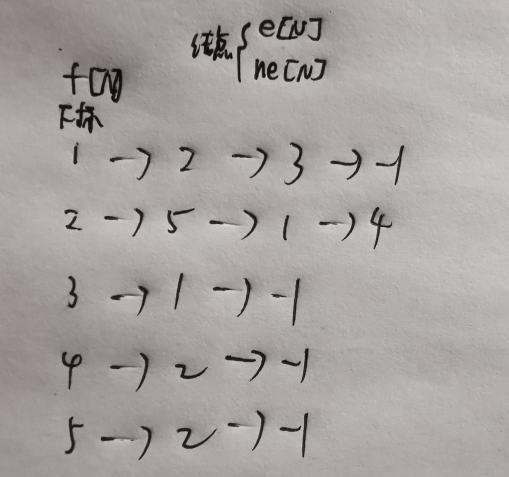 结点 { e[N]
ne[N]
f[N]
下标
1 → 2 → 3 → -1
2 → 5 → 1 → 4
3 → 1 → -1
4 → 2 → -1
5 → 2 → -1